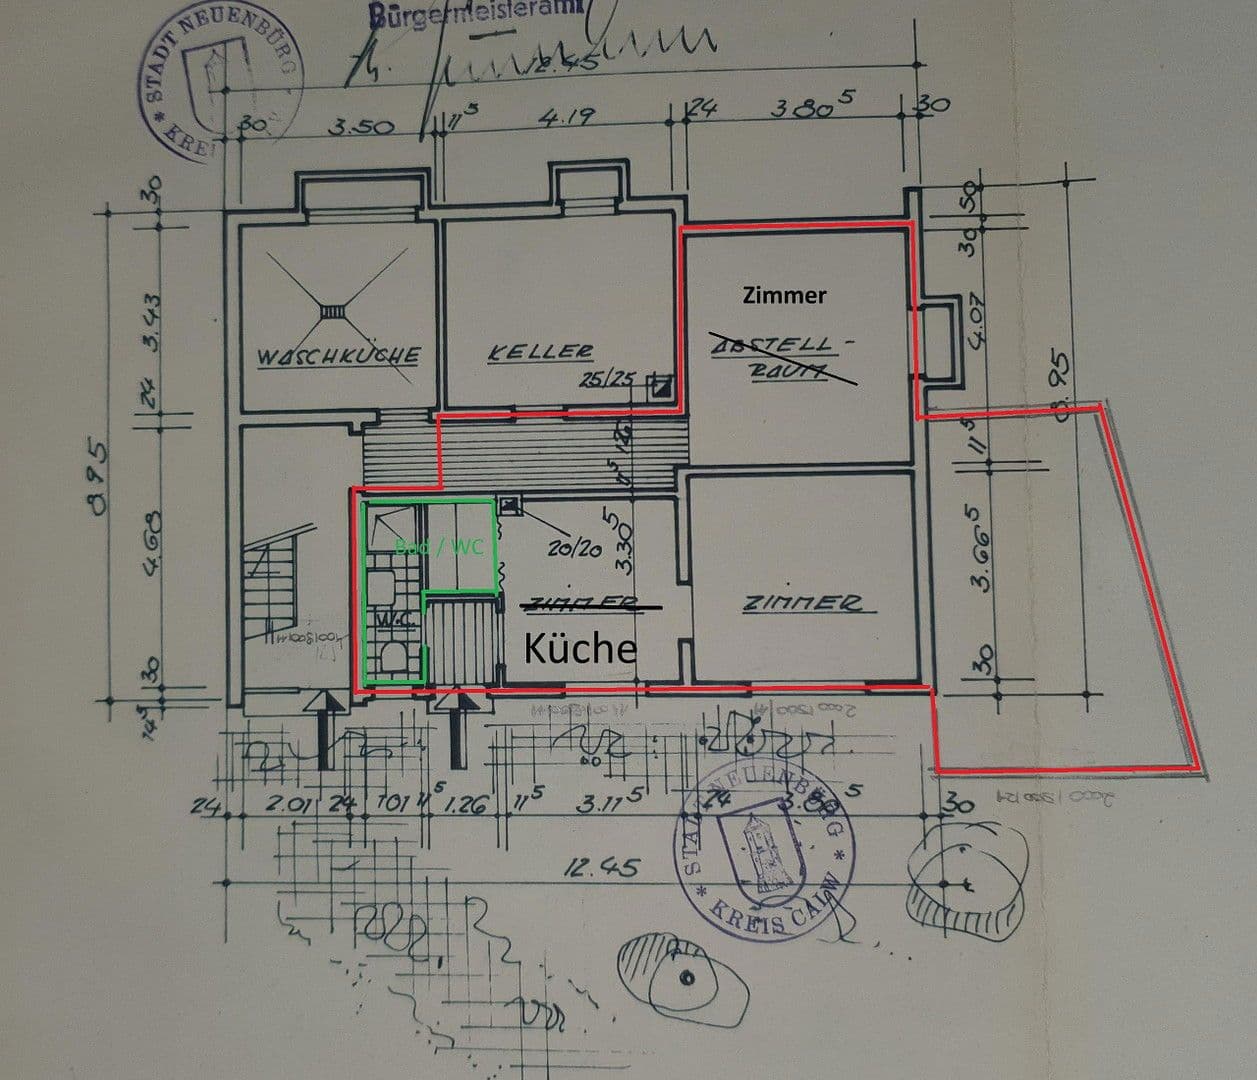 Bürgermeisteramt
* STADT NEUENBÜRG *
KREI
12.45
30
3.50
11⁵
4.19
24
3.80⁵
30
30
3.43
24
4.68
30
14⁵
8.95
50
30
4.07
11⁵
3.66⁵
30
8.95
WASCHKÜCHE
KELLER
25/25
Zimmer
ABSTELL-
RAUM
1.26
11⁵
Bad / WC
W.C.
20/20
3.30⁵
ZIMMER
Küche
ZIMMER
24
2.01
24
1.01
11⁵
1.26
11⁵
3.11⁵
24
3.80⁵
30
12.45
STADT NEUENBÜRG
* KREIS CALW *